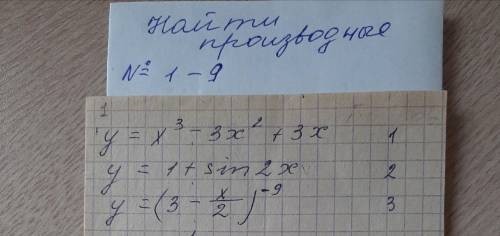 Найти
производные
№ 1 – 9
1
y = x³ - 3x² + 3x 1
y = 1 + sin 2x 2
y = (3 - x/2)⁻⁹ 3